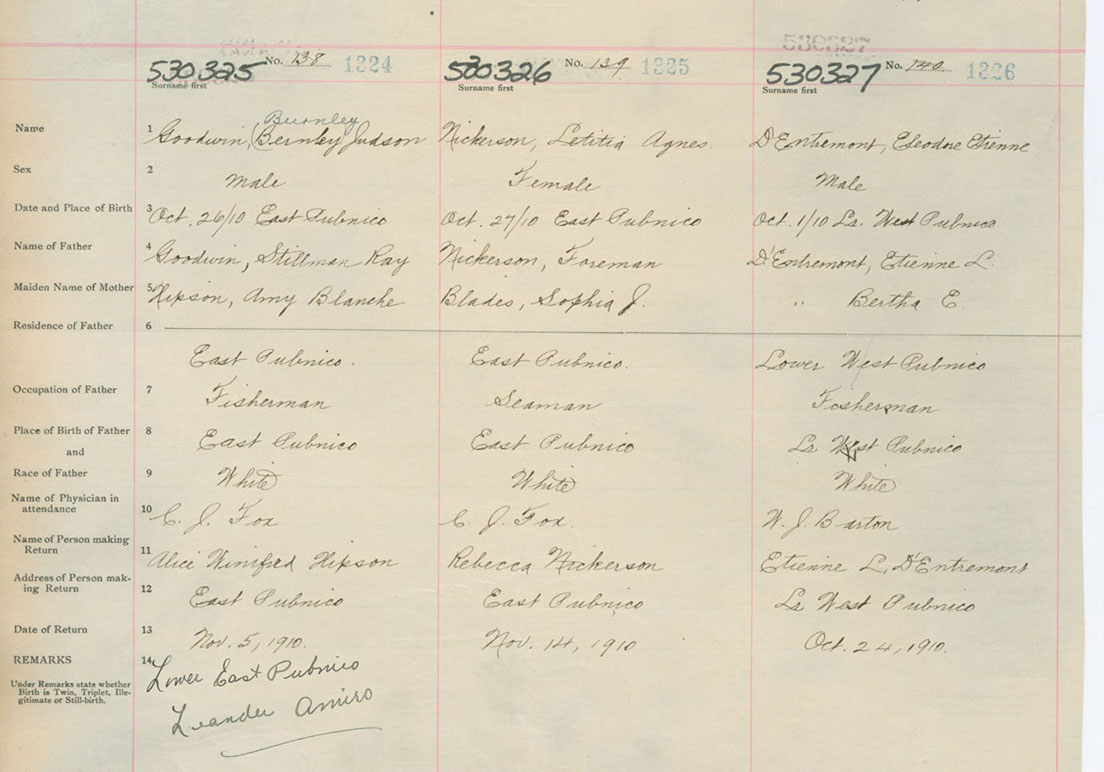 530325 No. 138 1324 530326 No. 139 1325 530327 No. 140 1326
Surname first Surname first Surname first
Burnley
Name 1 Goodwin, Bernley Judson Nickerson, Letitia Agnes. D'Entremont, Eleodore Etienne
Sex 2 Male Female Male
Date and Place of Birth 3 Oct. 26/10 East Pubnico Oct. 27/10 East Pubnico Oct. 1/10 Lr. West Pubnico
Name of Father 4 Goodwin, Stillman Ray Nickerson, Foreman D'Entremont, Etienne L.
Maiden Name of Mother 5 Hipson, Amy Blanche Blades, Sophia J. " Bertha E.
Residence of Father 6
East Pubnico. East Pubnico. Lower West Pubnico
Occupation of Father 7 Fisherman Seaman Fosherman
Place of Birth of Father 8 East Pubnico East Pubnico Lr West Pubnico
and
Race of Father 9 White White White
Name of Physician in
attendance 10 C. J. Fox C. J. Fox. W. J. Barton
Name of Person making
Return 11 Alice Winifred Hipson Rebecca Nickerson Etienne L. D'Entremont
Address of Person mak-
ing Return 12 East Pubnico East Pubnico Lr West Pubnico
Date of Return 13 Nov. 5, 1910. Nov. 14, 1910 Oct. 24, 1910.
REMARKS 14 Lower East Pubnico
Under Remarks state whether
Birth is Twin, Triplet, Ille-
gitimate or Still-birth.
Leander Amiro